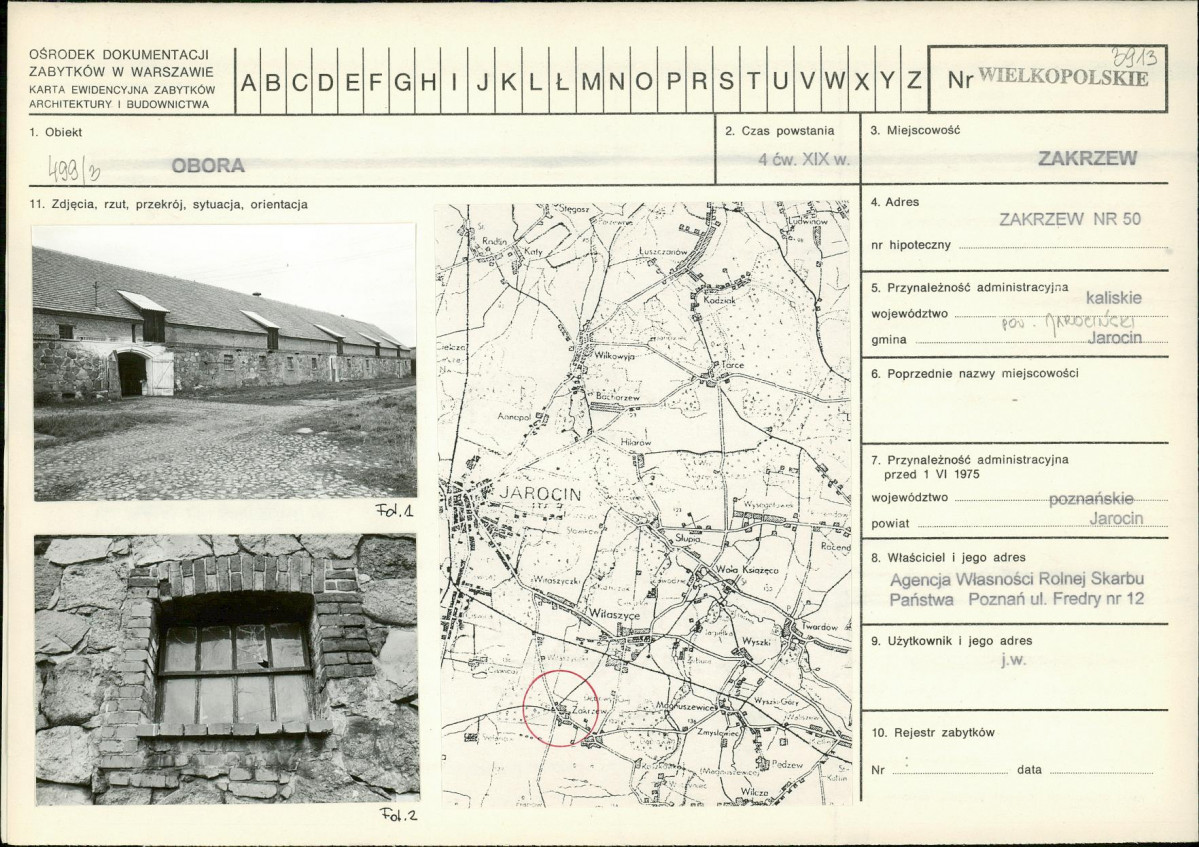 OŚRODEK DOKUMENTACJI
ZABYTKÓW W WARSZAWIE
KARTA EWIDENCYJNA ZABYTKÓW
ARCHITEKTURY I BUDOWNICTWA
A B C D E F G H I J K L Ł M N O P R S T U V W X Y Z
3913
Nr WIELKOPOLSKIE
1. Obiekt
499/3 OBORA
2. Czas powstania
4 ćw. XIX w.
3. Miejscowość
ZAKRZEW
11. Zdjęcia, rzut, przekrój, sytuacja, orientacja
Fot. 1
Fot. 2
Stęgosz
Radlin
Katy
Łuszczanów
Ludwinów
Kodziak
Wilkowyja
Tarce
Bachorzew
Annopol
Hilarów
JAROCIN
Słupia
Racend
Wola Książęca
Witaszyczki
Witaszyce
Twardów
Wyszki
Zakrzew
Magnuszewice
Wyszki-Góry
Zmysłowiec
Pędzew
(Magnuszewice)
Wilcza
4. Adres
ZAKRZEW NR 50
nr hipoteczny
5. Przynależność administracyjna
kaliskie
województwo
pow. JAROCIŃSKI
gmina Jarocin
6. Poprzednie nazwy miejscowości
-
7. Przynależność administracyjna
przed 1 VI 1975
województwo poznańskie
powiat Jarocin
8. Właściciel i jego adres
Agencja Własności Rolnej Skarbu
Państwa Poznań ul. Fredry nr 12
9. Użytkownik i jego adres
j.w.
10. Rejestr zabytków
Nr data